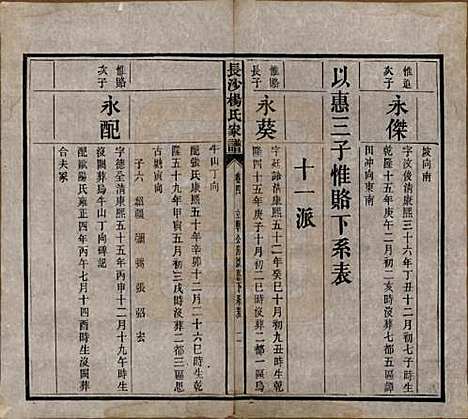 坡向南
惟追
次子
永傑
字汶俊清康熙三十六年丁丑十二月初
乾隆十五年庚午二月初二亥時沒葬七都五區
田沖向東南
以惠三子惟賂下系表
十一派
惟賂
長子
永葵
清康熙五十二年癸巳九月初九丑時生
隆四十五年庚子十月初二巳時沒葬二都一區烏
長沙楊氏家譜
卷四
牛山丁向
配張氏康熙五十年辛卯十二月二十六巳時生乾
隆五十九年甲寅五月初三戌時沒葬二都三區
古塘寅向
子六
惟賂
次子
永配
字德全清康熙五十五年丙申十二月十九午時生
沒同葬烏牛山丁向碑記
配歐陽氏雍正四年丙午七月十四酉時生沒
合夫冢